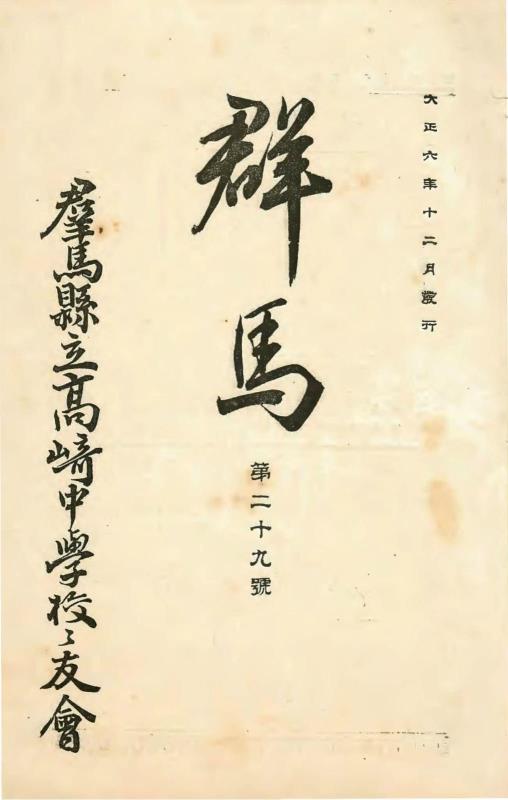 大正六年十二月發行
群馬
第二十九號
羣馬縣立高崎中學校々友會